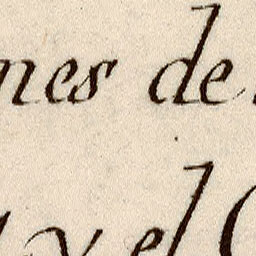 nes de
y el